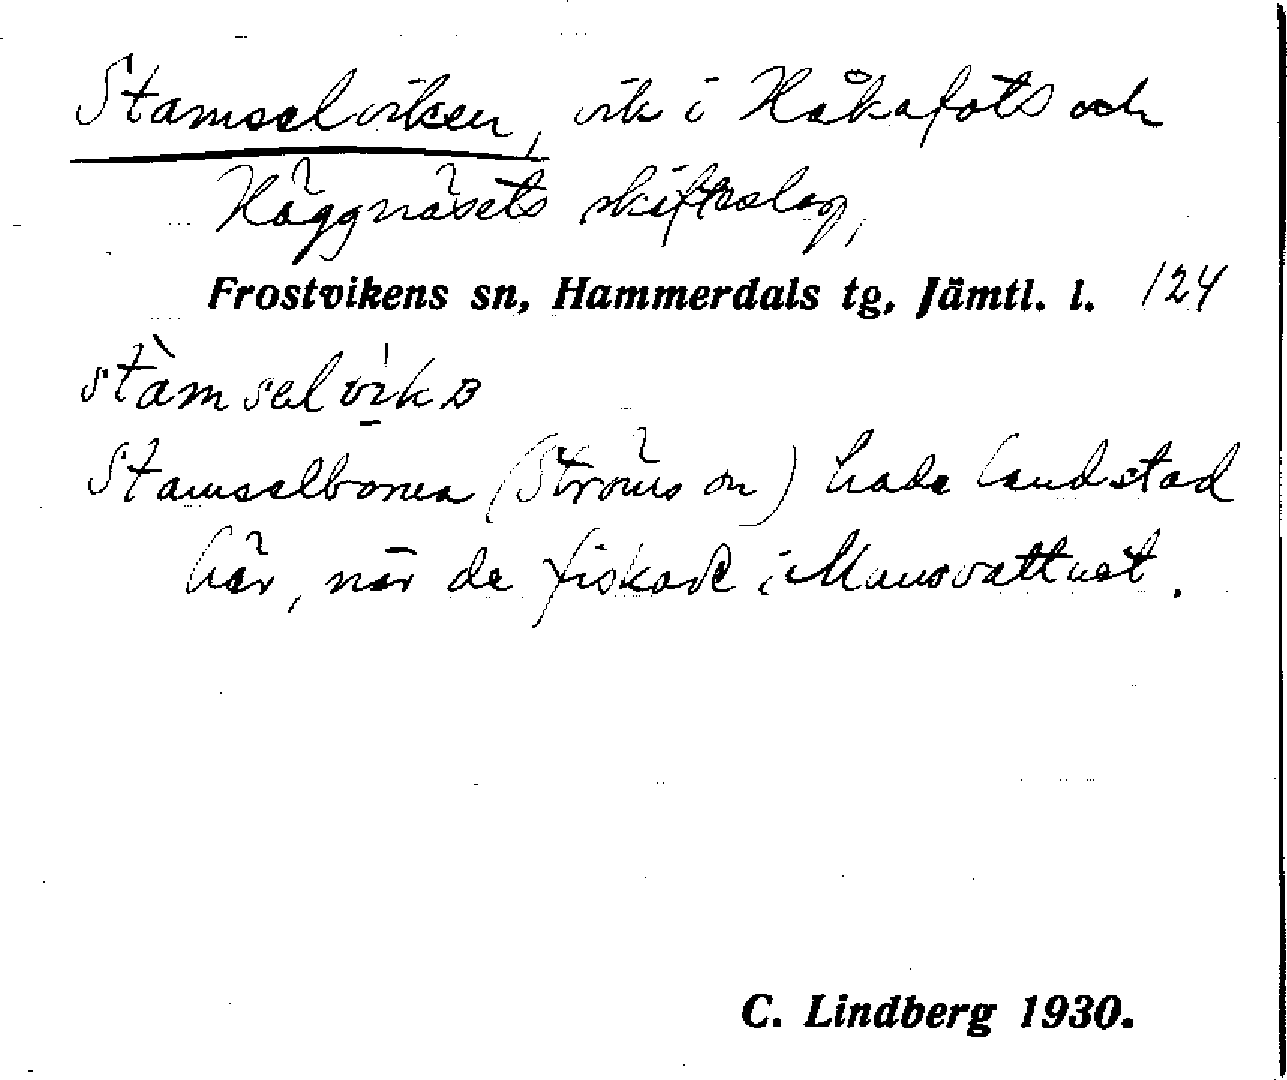 Stamselviken, vik i Håkafots och
Häggnäsets skifteslag,
Frostvikens sn, Hammerdals tg, Jämtl. l. 124
stàmselvikɐ
Stamselborna (Ströms sn) hade landstad
här, när de fiskade i Mausvattnet.
C. Lindberg 1930.